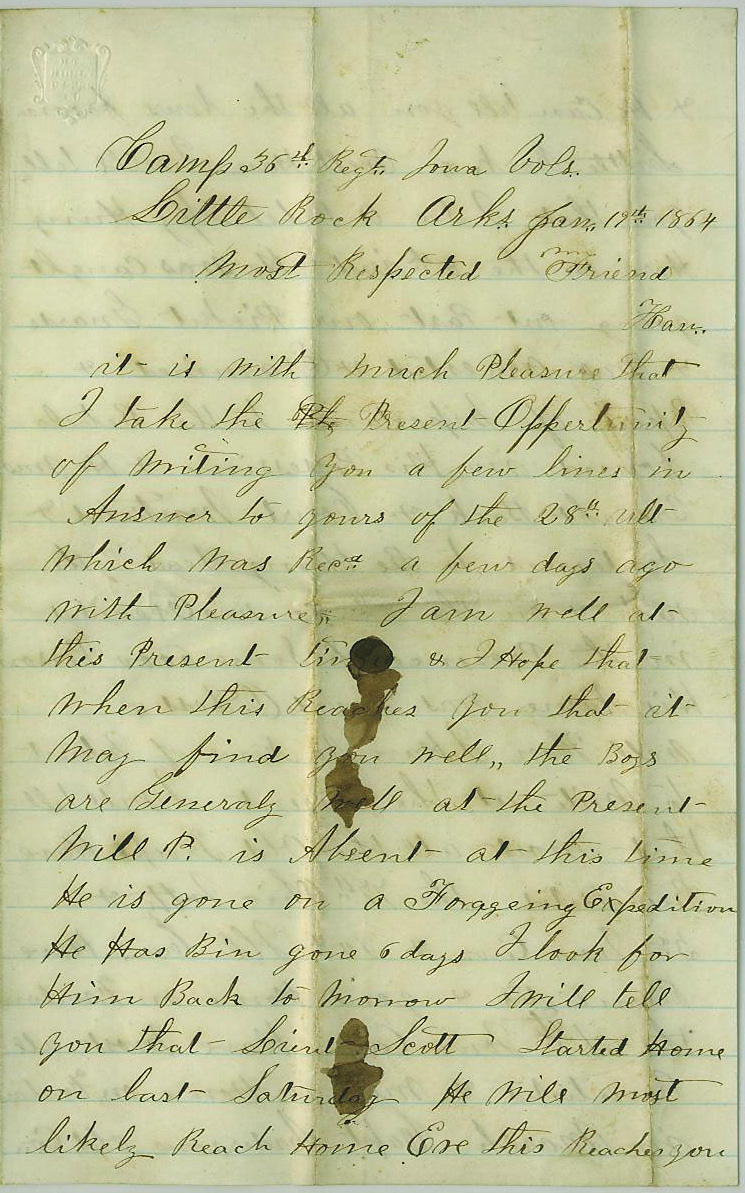 Camp 36th Regt. Iowa Vols.
Little Rock Arks. Jan. 19th 1864
Most Respected Friend
Han.
it is with much Pleasure that
I take the Present Oppertunity
of Writing you a few lines in
Answer to yours of the 28th ult
which was Recd a few days ago
with Pleasure, I am well at
this Present time & I Hope that
when this Reaches you that it
May find you well,, the Boys
are Generaly well at the Present
Will P. is Absent at this time
He is gone on a Forageing Expedition
He Has Bin gone 6 days I look for
Him Back to morrow I will tell
you that Lieut Scott Started Home
on last Saturday He Will most
likely Reach Home Ere this Reaches you